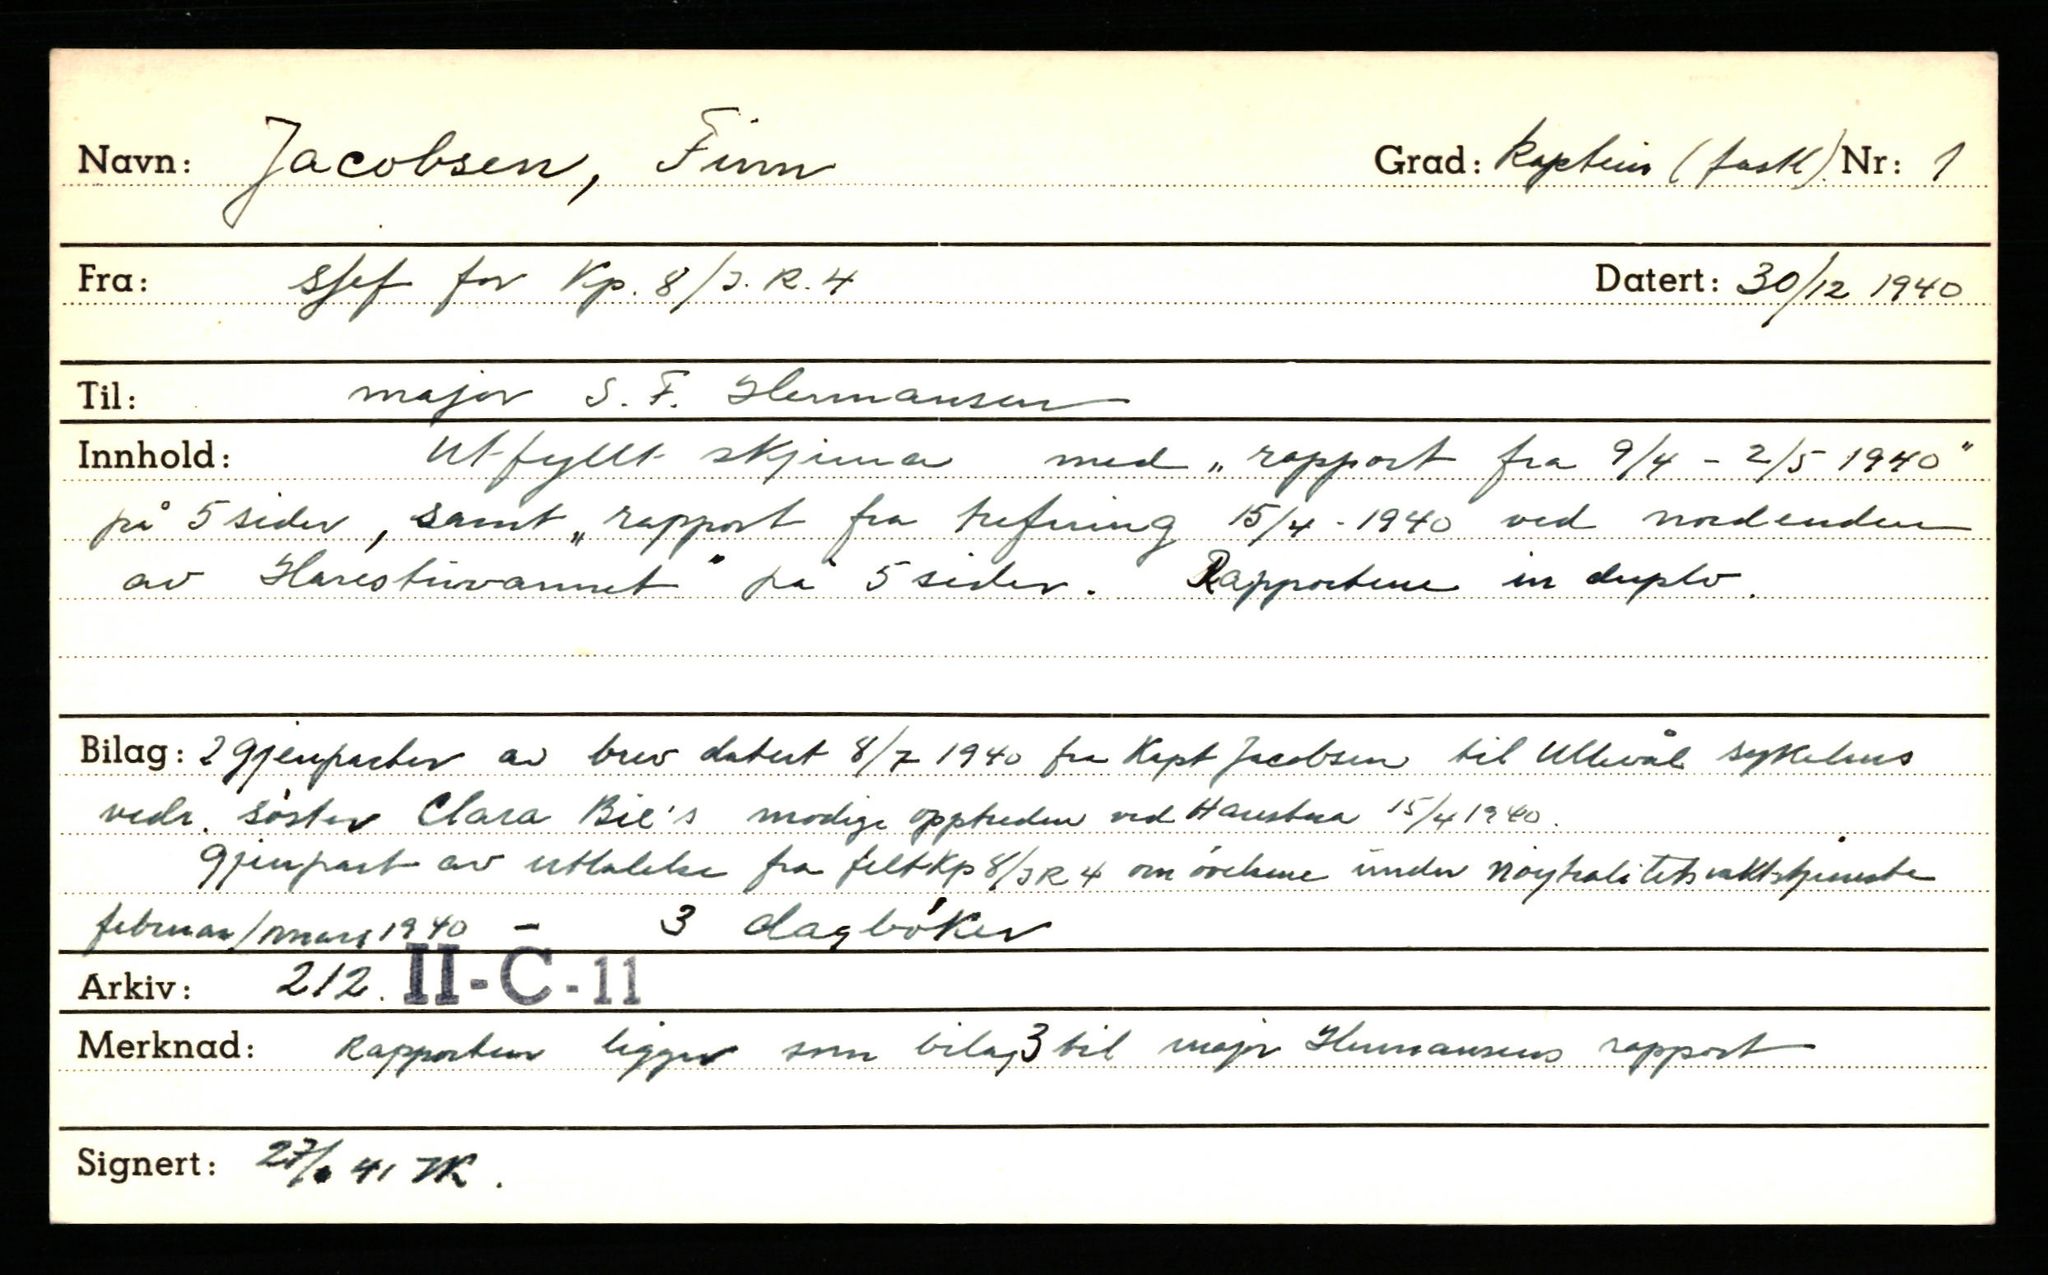 Navn: Jacobsen, Finn Grad: kaptein (fask) Nr: 1
Fra: sjef for Kp. 8/J.R.4 Datert: 30/12 1940
Til: major S. F. Hermansen
Innhold: Utfyllt skjema med „rapport fra 9/4 - 2/5 1940"
på 5 sider, samt „rapport fra trefning 15/4 - 1940 ved nordenden
av Harestuvannet" på 5 sider. Rapportene in duplo.
Bilag: 2 gjenparter av brev datert 8/7 1940 fra Kapt Jacobsen til Ullevål sykehus
vedr. søster Clara Bie's modige opptreden ved Harestua 15/4 1940.
Gjenpart av uttalelse fra feltkp 8/JR4 om øvelsene under nøytralitetsvakttjeneste
februar/mars 1940 - 3 dagbøker
Arkiv: 212. II-C-11
Merknad: Rapporten ligger som bilag 3 til major Hermansens rapport
Signert: 27/ 41